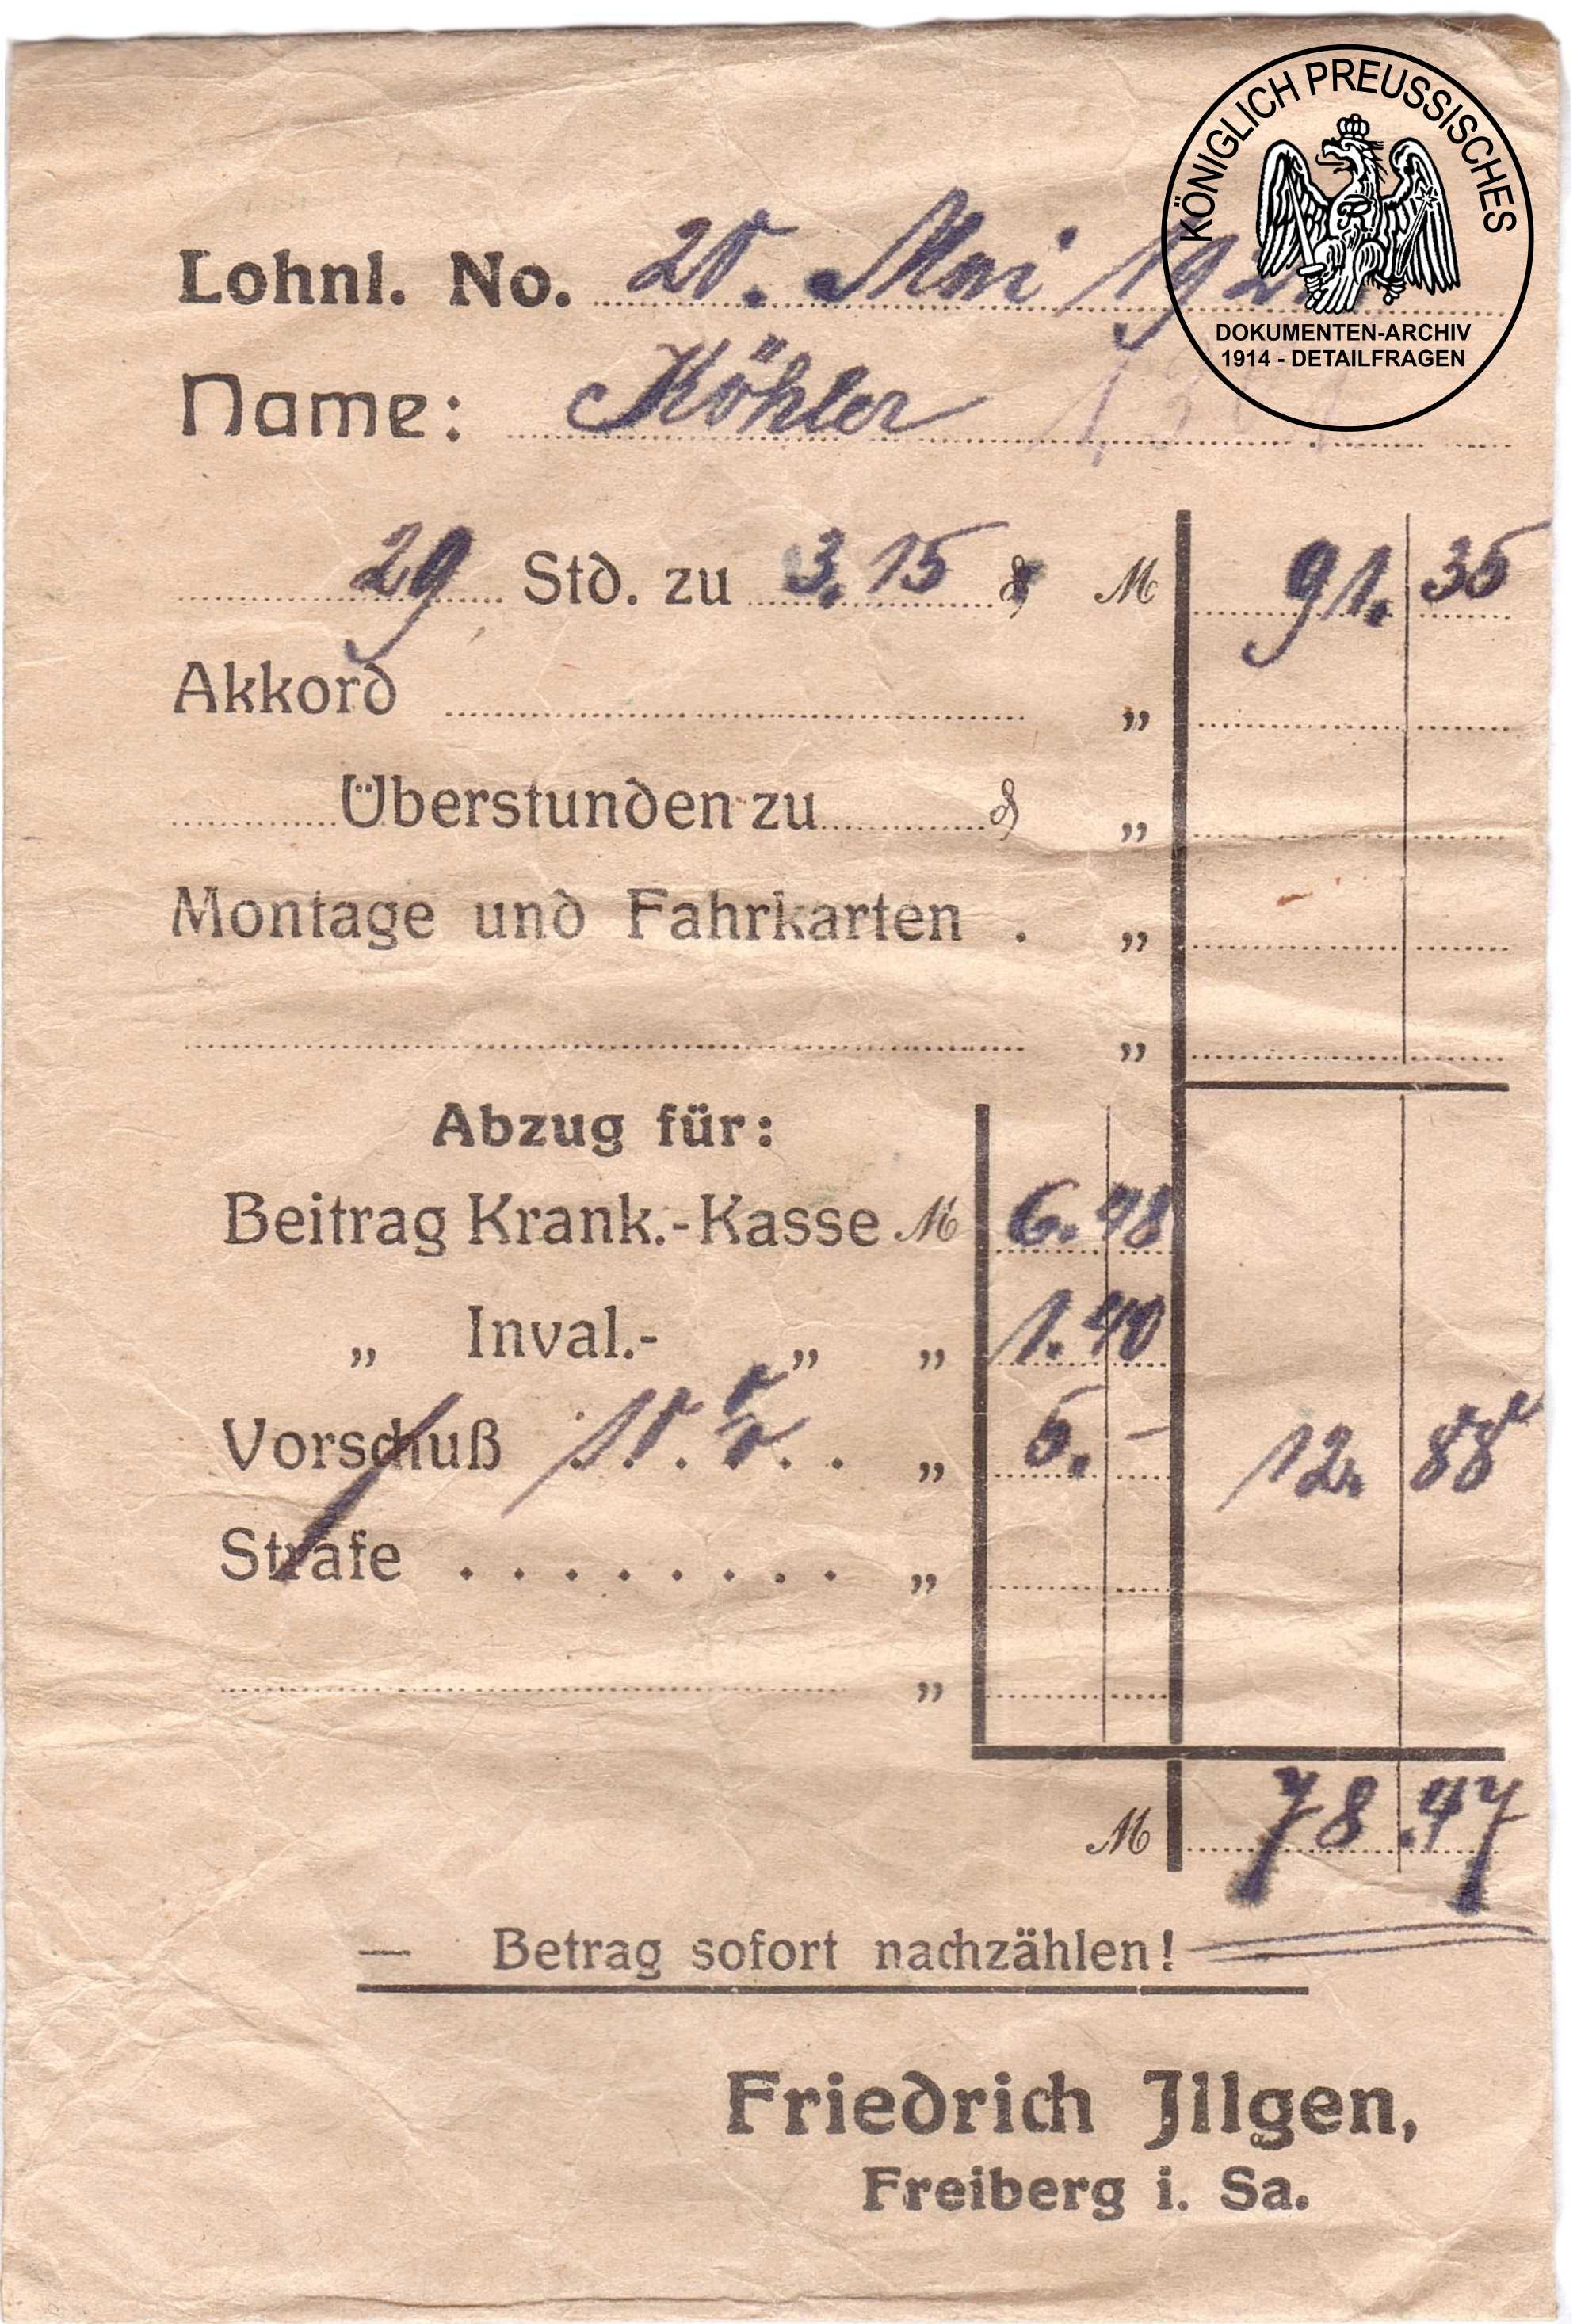 KÖNIGLICH PREUSSISCHES
DOKUMENTEN-ARCHIV
1914 - DETAILFRAGEN
Lohnl. No. 20. Mai 192
Name: Köhler
29 Std. zu 3.15 ₰ M 91.35
Akkord „
Überstunden zu ₰ „
Montage und Fahrkarten . „
„
Abzug für:
Beitrag Krank.-Kasse M 6.48
„ Inval.- „ „ 1.40
Vorschuß 10 % „ 5.– 12.88
Strafe . . . . . . . . „
„
M 78.47
— Betrag sofort nachzählen!
Friedrich Illgen,
Freiberg i. Sa.